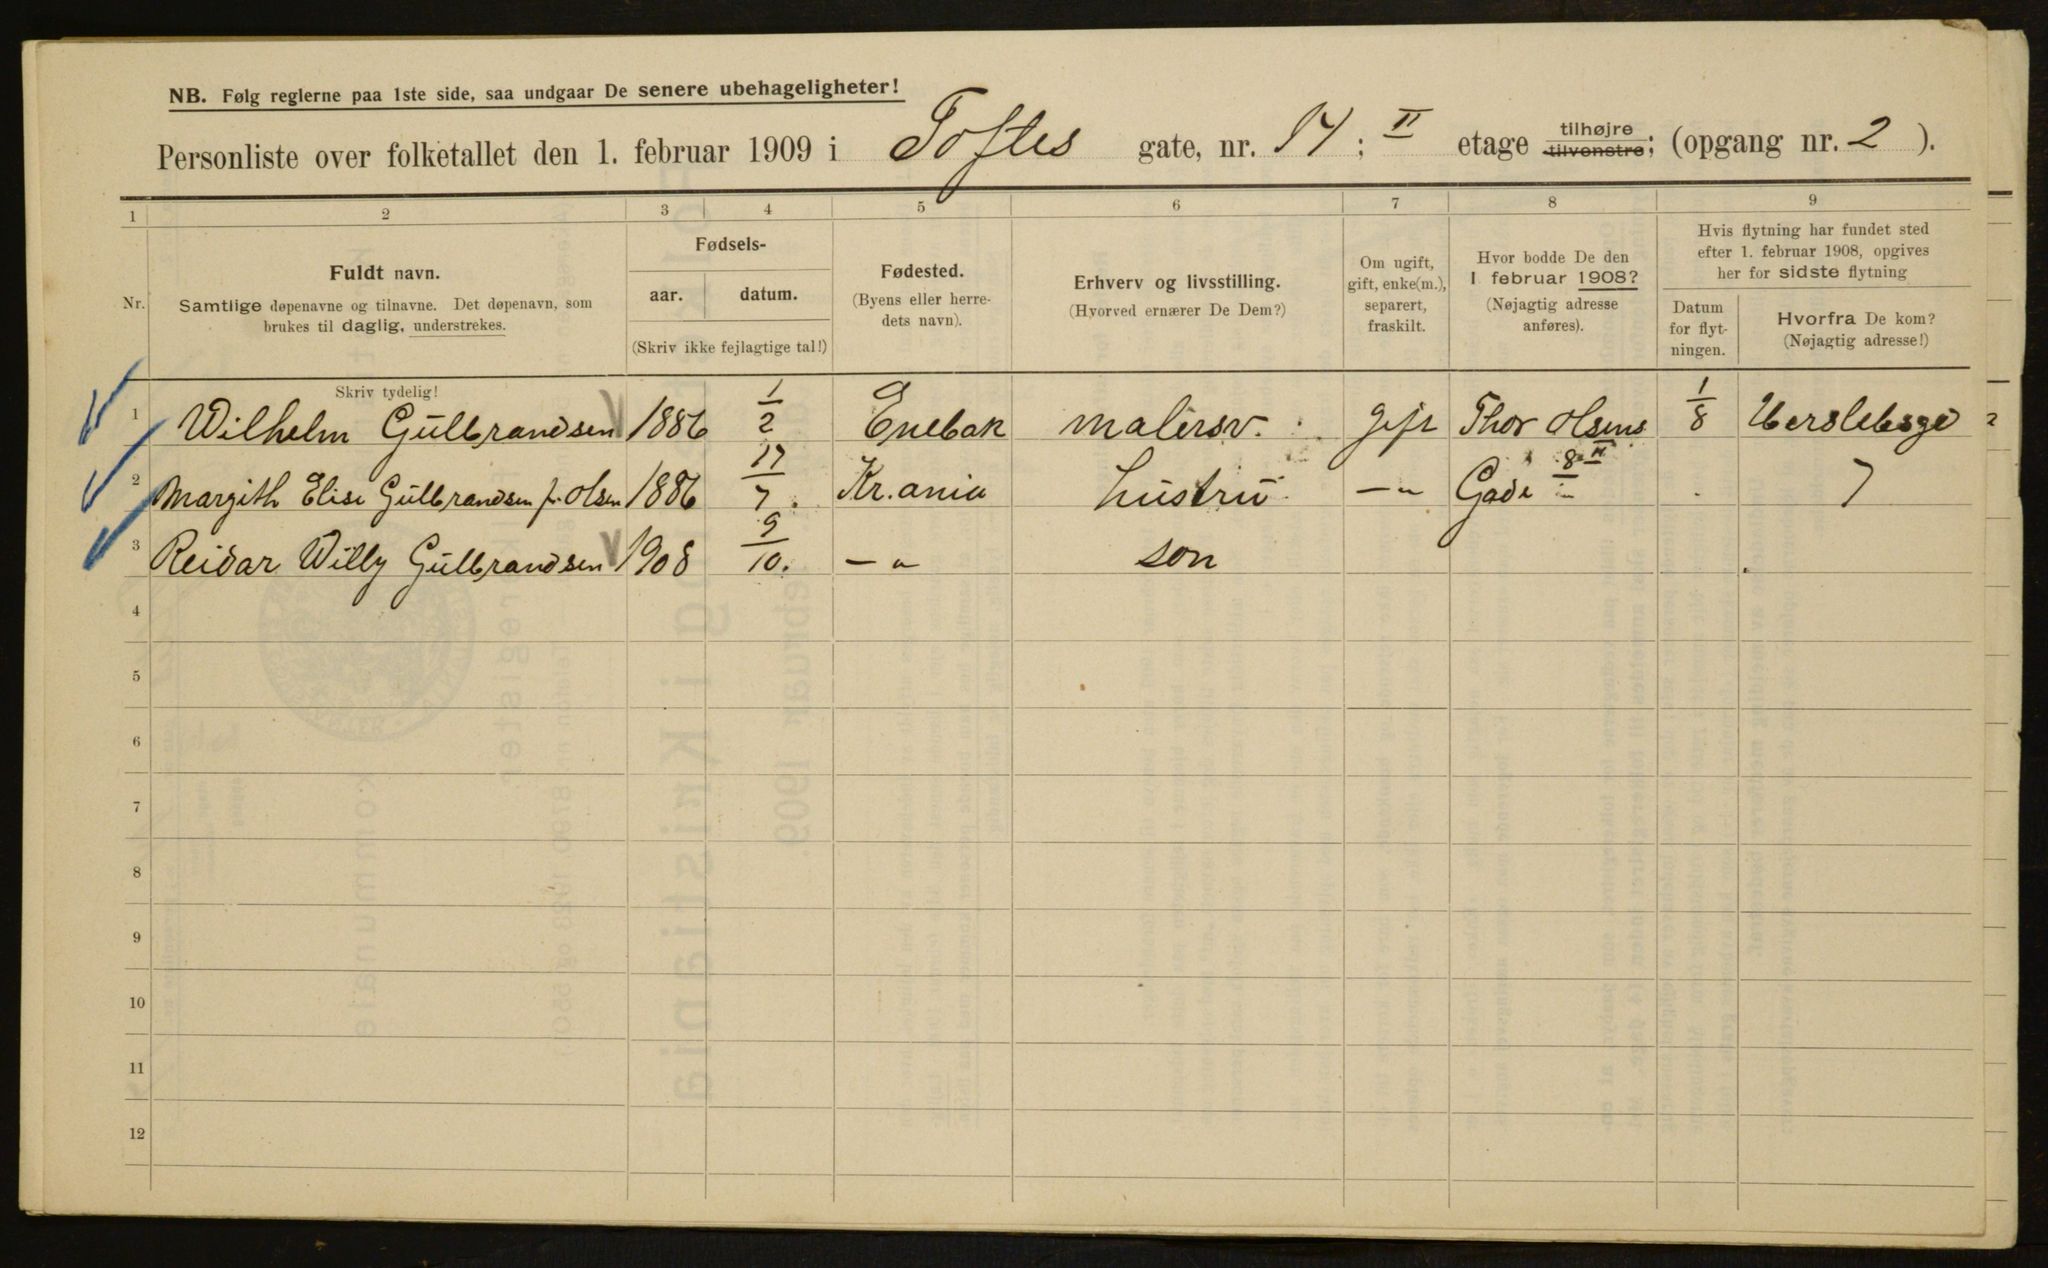 NB. Følg reglerne paa 1ste side, saa undgaar De senere ubehageligheter!
Personliste over folketallet den 1. februar 1909 i Toftes gate, nr. 14; II etage tilhøjre tilvenstre; (opgang nr. 2).
1 2 3 4 5 6 7 8 9
Nr.
Fuldt navn.
Samtlige døpenavne og tilnavne. Det døpenavn, som
brukes til daglig, understrekes.
Fødsels-
aar. datum.
(Skriv ikke fejlagtige tal!)
Fødested.
(Byens eller herre-
dets navn).
Erhverv og livsstilling.
(Hvorved ernærer De Dem?)
Om ugift,
gift, enke(m.),
separert,
fraskilt.
Hvor bodde De den
1 februar 1908?
(Nøjagtig adresse
anføres).
Hvis flytning har fundet sted
efter 1. februar 1908, opgives
her for sidste flytning
Datum
for flyt-
ningen.
Hvorfra De kom?
(Nøjagtig adresse!)
Skriv tydelig!
1 Wilhelm Gulbrandsen 1886 1/2 Enebak malersv. gift Thor Olsens 1/8 Herslebsgd
2 Margith Elise Gulbrandsen f. Olsen 1886 17/7. Kr.ania hustru —" Gade 8 II 7
3 Reidar Willy Gulbrandsen 1908 9/10. —" son
4
5
6
7
8
9
10
11
12